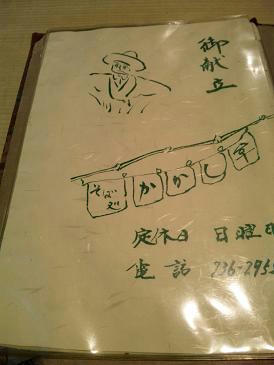 御献立
そば処 かかし亭
定休日 日曜日
電話 736-295